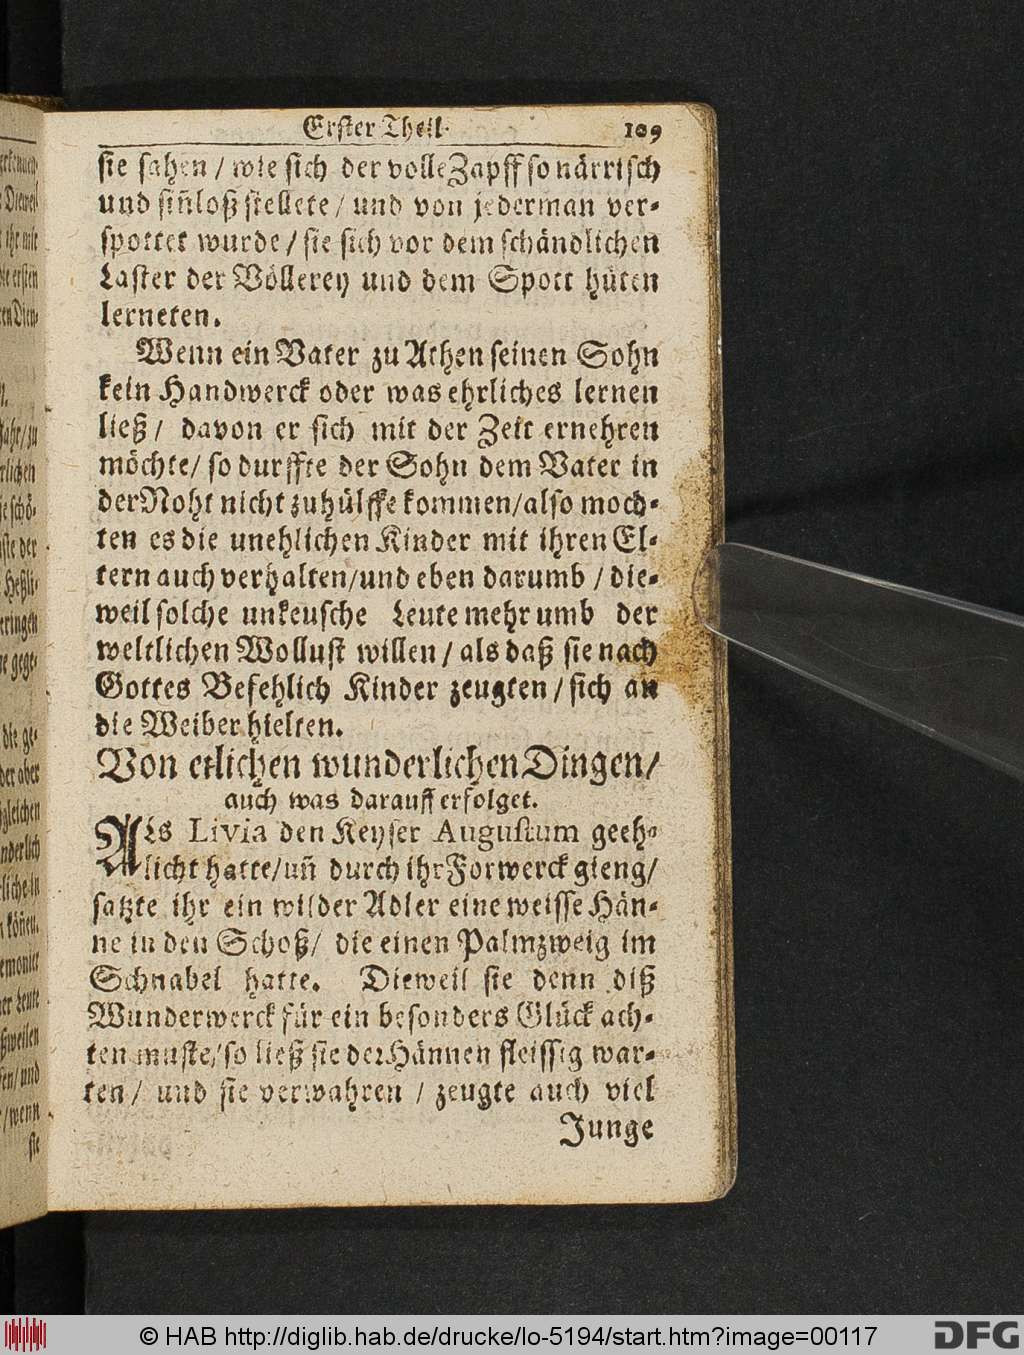 Erster Theil. 109
sie sahen / wie sich der volle Zapff so närrisch
und siñloß stellete / und von jederman ver-
spottet wurde / sie sich vor dem schändlichen
Laster der Völlerey und dem Spott hüten
lerneten.
Wenn ein Vater zu Athen seinen Sohn
kein Handwerck oder was ehrliches lernen
ließ / davon er sich mit der Zeit ernehren
möchte / so durffte der Sohn dem Vater in
der Noht nicht zu hülffe kommen / also moch-
ten es die unehlichen Kinder mit ihren El-
tern auch verhalten / und eben darumb / die-
weil solche unkeusche Leute mehr umb der
weltlichen Wollust willen / als daß sie nach
Gottes Befehlich Kinder zeugten / sich an
die Weiber hielten.
Von etlichen wunderlichen Dingen /
auch was darauff erfolget.
Als Livia den Keyser Augustum geeh-
licht hatte / uñ durch ihr Forwerck gieng /
satzte ihr ein wilder Adler eine weisse Hän-
ne in den Schoß / die einen Palmzweig im
Schnabel hatte. Dieweil sie denn diß
Wunderwerck für ein besonders Glück ach-
ten muste / so ließ sie der Hännen fleissig war-
ten / und sie verwahren / zeugte auch viel
Junge
© HAB http://diglib.hab.de/drucke/lo-5194/start.htm?image=00117
DFG